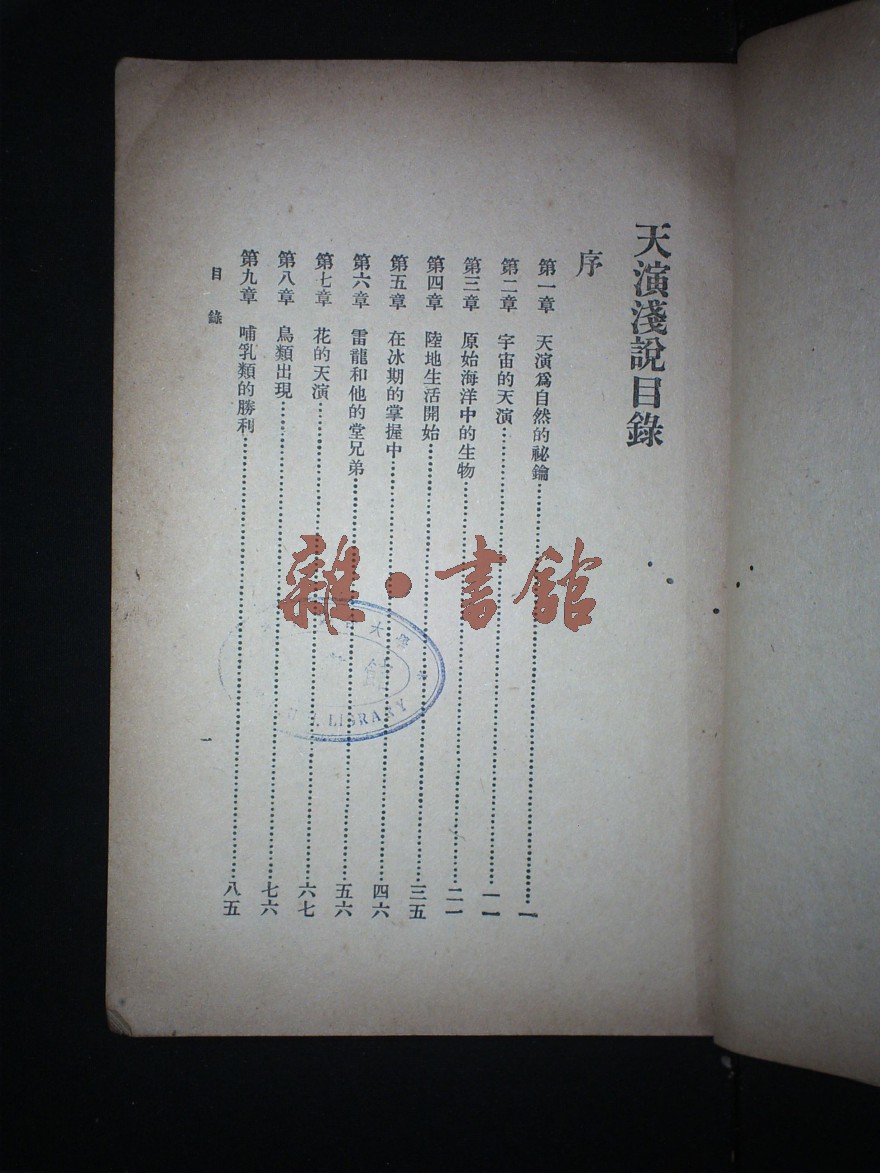 天演淺說目錄
序
第一章　天演爲自然的祕鑰……一
第二章　宇宙的天演……一一
第三章　原始海洋中的生物……二一
第四章　陸地生活開始……三五
第五章　在冰期的掌握中……四六
第六章　雷龍和他的堂兄弟……五六
第七章　花的天演……六七
第八章　鳥類出現……七六
第九章　哺乳類的勝利……八五
目錄
一
雜·書館
大學
LIBRARY